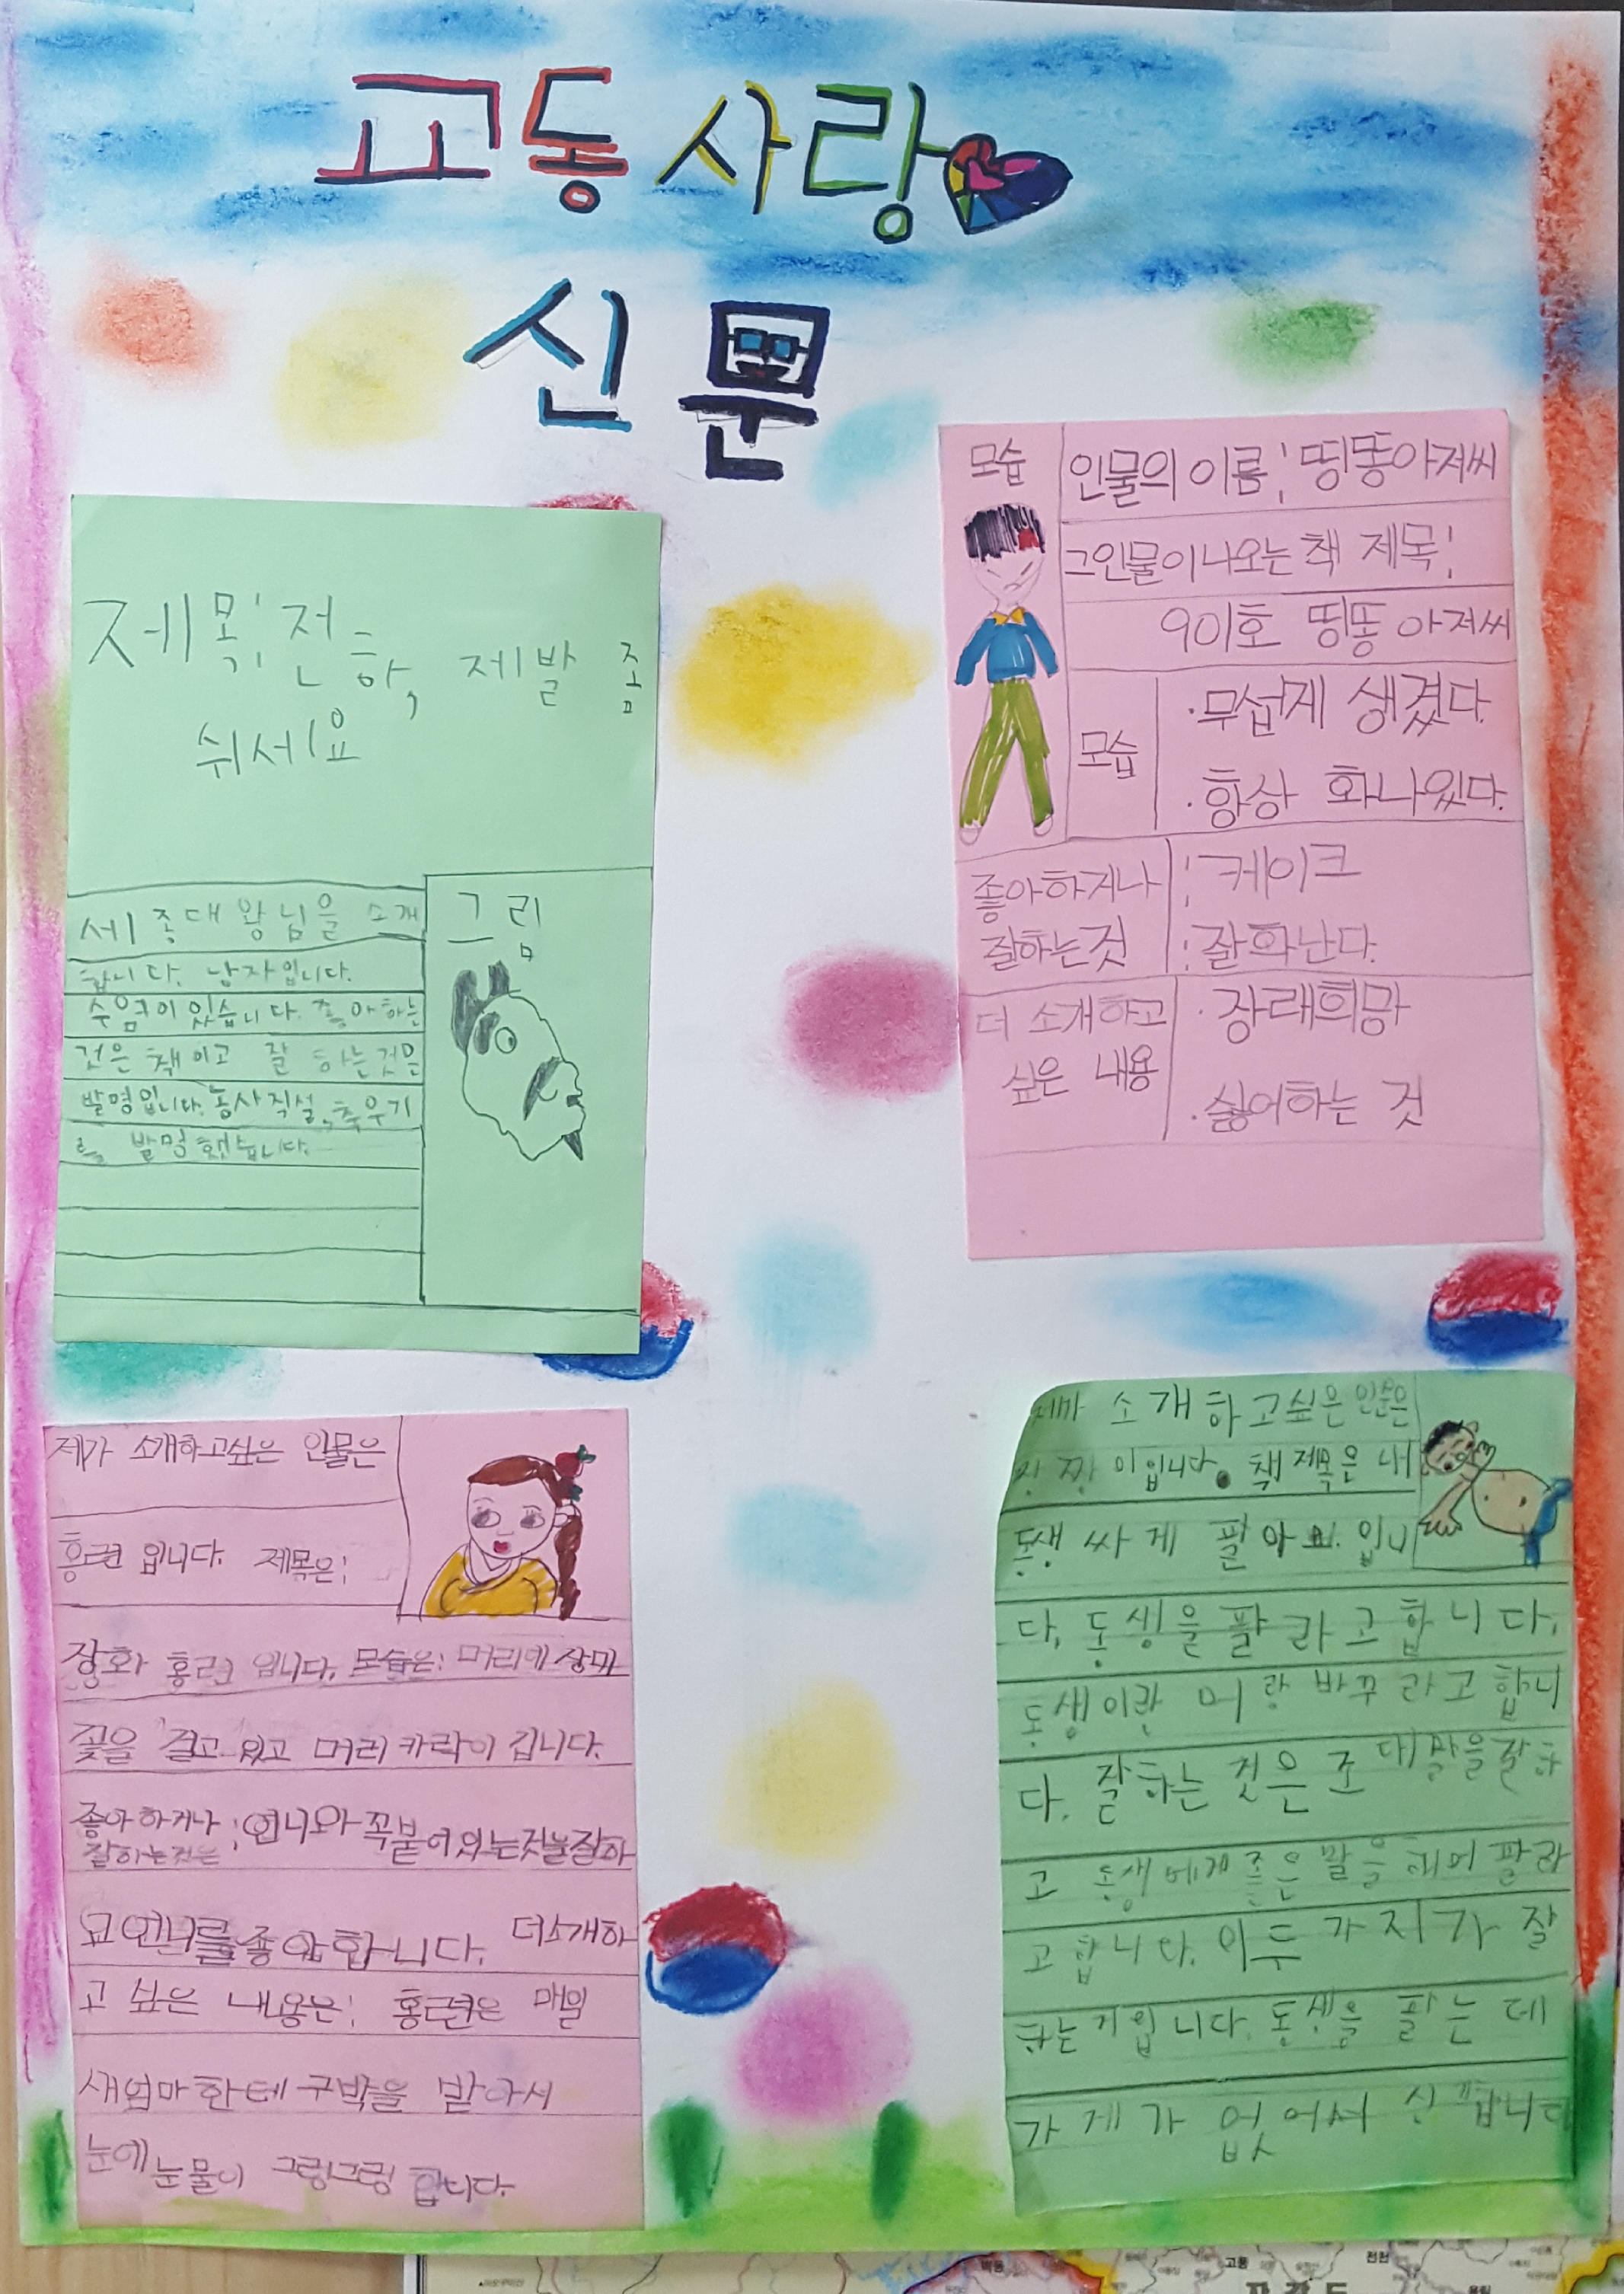 교동사랑
신문
제목: 전하, 제발 좀
쉬세요
세종대왕님을 소개
합니다. 남자입니다.
수염이 있습니다. 좋아하는
것은 책이고 잘 하는것은
발명입니다. 농사직설, 측우기
를 발명했습니다.
그림
모습
인물의 이름: 띵똥아저씨
그인물이 나오는 책 제목:
901호 띵똥 아저씨
모습
·무섭게 생겼다.
·항상 화나있다.
좋아하거나
잘하는것
: 케이크
: 잘화난다.
더 소개하고
싶은 내용
· 장래희망
· 싫어하는 것
제가 소개하고싶은 인물은
홍련 입니다. 제목은:
장화 홍련 입니다. 모습은: 머리에 장미
꽃을 걸고 있고 머리카락이 깁니다.
좋아하거나
잘하는것은: 언니와 꼭붙어있는것을잘하
고 언니를좋아합니다. 더소개하
고 싶은 내용은: 홍련은 매일
새엄마한테 구박을 받아서
눈에눈물이 그렁그렁 합니다.
제가 소개하고싶은 인물은
짱짱이입니다. 책 제목은 내
동생 싸게 팔아요 입니
다. 동생을 팔라고합니다.
동생이랑 머랑 바꾸라고 합니
다. 잘하는 것은 조대말을잘하
고 동생에게 좋은 말을 해며 팔라
고합니다. 이두가지가 잘
하는기입니다. 동생을 팔는데
가게가 없어서
고풍
전천
자강도